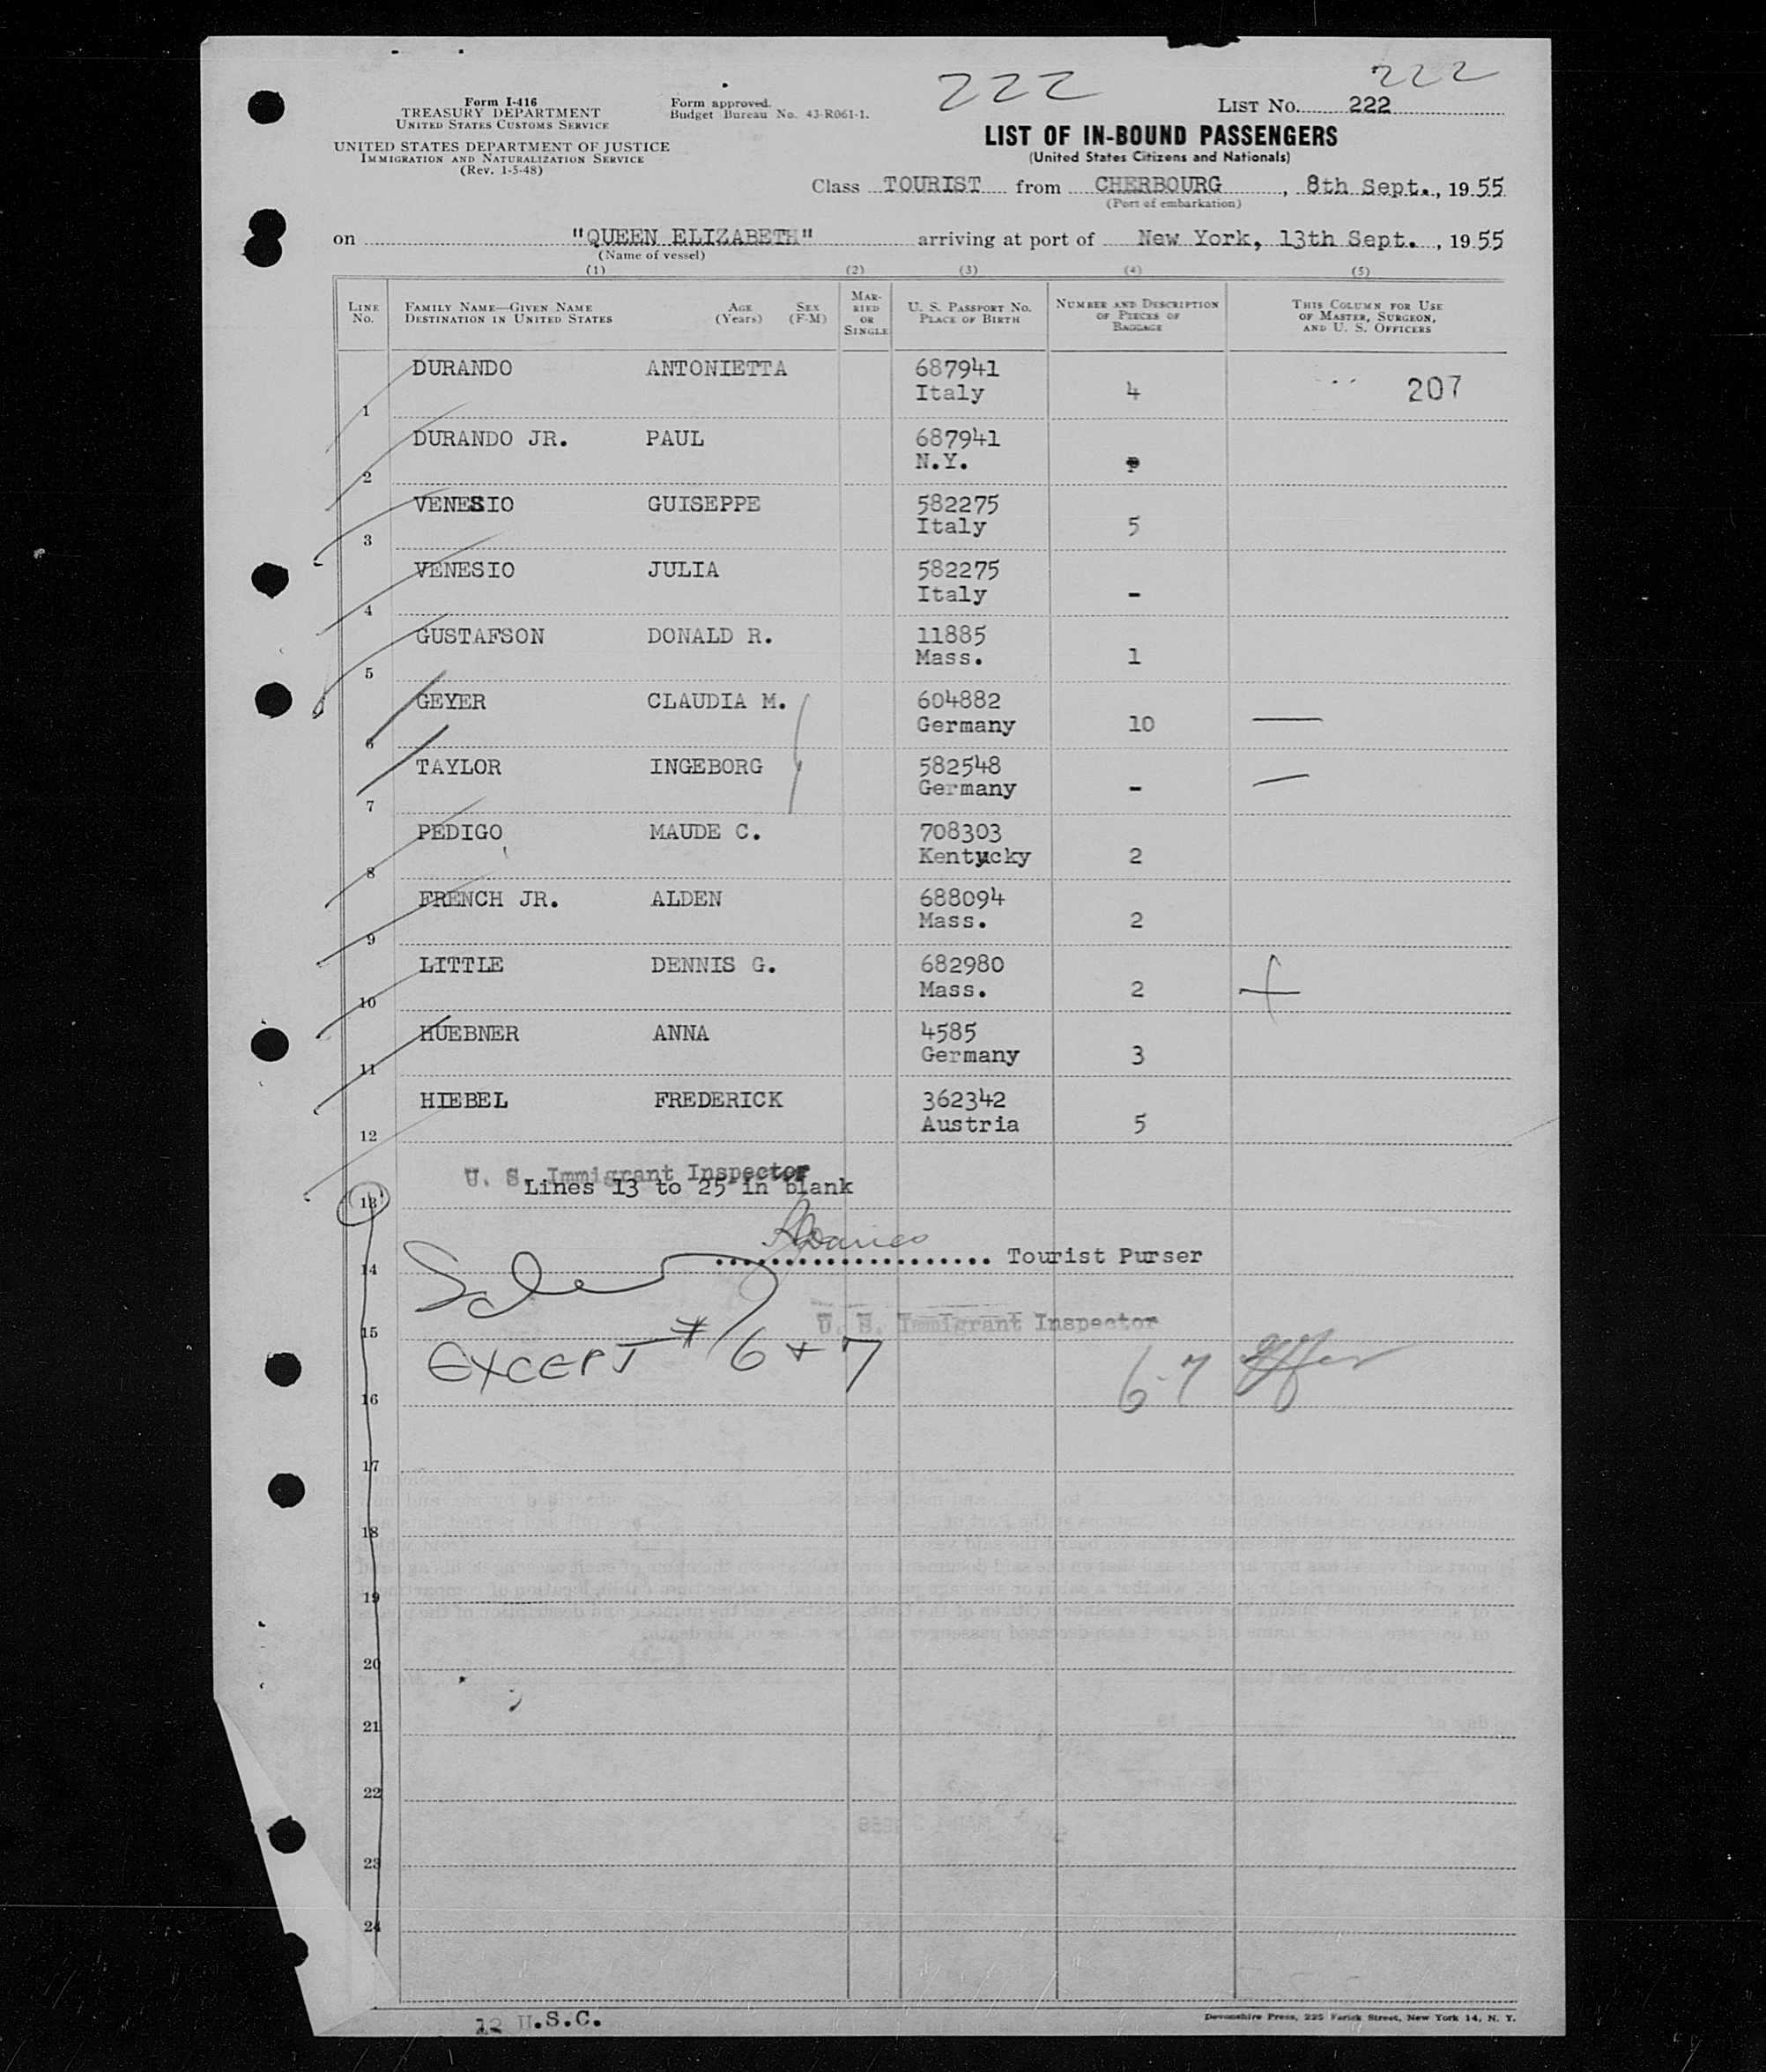 222
222
Form I-416
TREASURY DEPARTMENT
UNITED STATES CUSTOMS SERVICE
UNITED STATES DEPARTMENT OF JUSTICE
IMMIGRATION AND NATURALIZATION SERVICE
(Rev. 1-5-48)
Form approved.
Budget Bureau No. 43-R061-1.
LIST NO. 222
LIST OF IN-BOUND PASSENGERS
(United States Citizens and Nationals)
Class TOURIST from CHERBOURG, 8th Sept., 1955
(Port of embarkation)
on "QUEEN ELIZABETH" arriving at port of New York, 13th Sept., 1955
(Name of vessel)
(1) (2) (3) (4) (5)
LINE NO.
FAMILY NAME—GIVEN NAME
DESTINATION IN UNITED STATES
AGE (Years)
SEX (F-M)
MARRIED OR SINGLE
U. S. PASSPORT NO.
PLACE OF BIRTH
NUMBER AND DESCRIPTION OF PIECES OF BAGGAGE
THIS COLUMN FOR USE OF MASTER, SURGEON, AND U. S. OFFICERS
DURANDO ANTONIETTA 687941
Italy 4 207
1
DURANDO JR. PAUL 687941
N.Y.
2
VENESIO GUISEPPE 582275
Italy 5
3
VENESIO JULIA 582275
Italy -
4
GUSTAFSON DONALD R. 11885
Mass. 1
5
GEYER CLAUDIA M. 604882
Germany 10 —
6
TAYLOR INGEBORG 582548
Germany - —
7
PEDIGO MAUDE C. 708303
Kentucky 2
8
FRENCH JR. ALDEN 688094
Mass. 2
9
LITTLE DENNIS G. 682980
Mass. 2 +
10
HUEBNER ANNA 4585
Germany 3
11
HIEBEL FREDERICK 362342
Austria 5
12
U. S. Immigrant Inspector
Lines 13 to 25 in blank
13
.................... Tourist Purser
14
U. S. Immigrant Inspector
15
EXCEPT # 6 + 7
6-7
16
17
18
19
20
21
22
23
24
12 U.S.C.
Devonshire Press, 225 Varick Street, New York 14, N. Y.